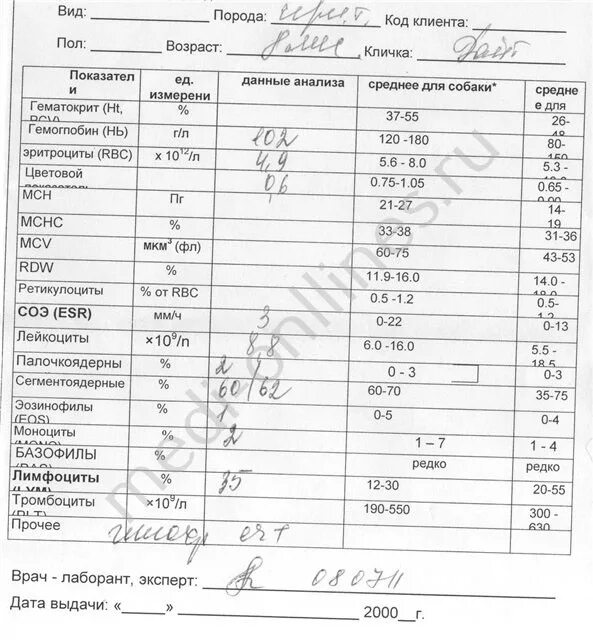 Вид: Порода: Код клиента:
Пол: Возраст: 8 мис. Кличка:
Показатели ед. измерени данные анализа среднее для собаки* среднее для
Гематокрит (Ht, % 37-55 26-
Гемогпобин (НЬ) г/л 102 120 -180 80-
эритроциты (RBC) х 10¹²/л 4,9 5.6 - 8.0 5.3 -
Цветовой 06 0.75-1.05 0.65 -
МСН Пг 21-27 14-19
МСНС % 33-38 31-36
MCV мкм³ (фл) 60-75 43-53
RDW % 11.9-16.0 14.0 -
Ретикулоциты % от RBC 0.5 -1.2 0.5-
СОЭ (ESR) мм/ч 3 0-22 0-13
Лейкоциты ×10⁹/л 8,8 6.0 -16.0 5.5 - 18.5
Палочкоядерны % 2 1 0 - 3 0-3
Сегментоядерные % 60 62 60-70 35-75
Эозинофилы (EOS) % 1 0-5 0-4
Моноциты % 2 1 – 7 1 - 4
БАЗОФИЛЫ % редко редко
Лимфоциты (LYM) % 35 12-30 20-55
Тромбоциты ×10⁹/л 190-550 300 - 630
Прочее
Врач - лаборант, эксперт: 080711
Дата выдачи: «_____» 2000__г.
medi-onllines.ru